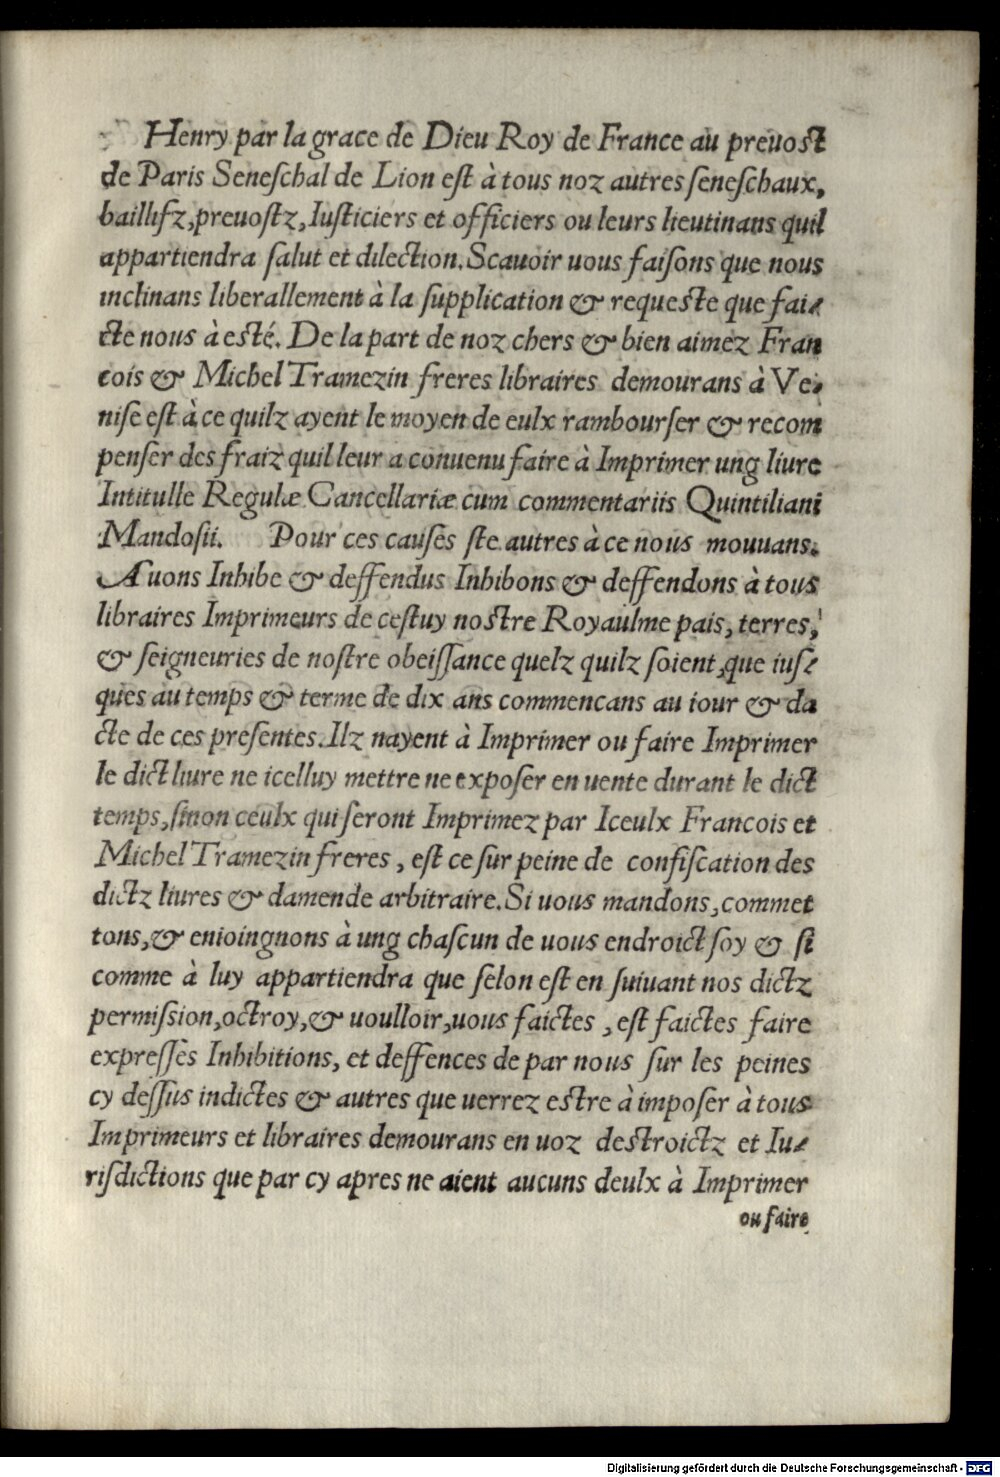 Henry par la grace de Dieu Roy de France au preuost
de Paris Seneſchal de Lion eſt à tous noz autres ſeneſchaux,
baillifz, preuoſtz, Iuſticiers et officiers ou leurs lieutinans quil
appartiendra ſalut et dilection. Scauoir uous faiſons que nous
inclinans liberallement à la ſupplication & requeſte que fai-
cte nous à eſté. De la part de noz chers & bien aimez Fran
cois & Michel Tramezin freres libraires demourans à Ve-
niſe eſt à ce quilz ayent le moyen de eulx rambourſer & recom
penſer des fraiz quil leur a conuenu faire à Imprimer ung liure
Intitulle Regulæ Cancellariæ cum commentariis Quintiliani
Mandoſii. Pour ces cauſes ſte autres à ce nous mouuans.
Auons Inhibe & deffendus Inhibons & deffendons à tous
libraires Imprimeurs de ceſtuy noſtre Royaulme pais, terres,
& ſeigneuries de noſtre obeiſſance quelz quilz ſoient, que iuſ-
ques au temps & terme de dix ans commencans au iour & da
cte de ces preſentes. Ilz nayent à Imprimer ou faire Imprimer
le dict liure ne icelluy mettre ne expoſer en uente durant le dict
temps, ſinon ceulx qui ſeront Imprimez par Iceulx Francois et
Michel Tramezin freres, eſt ce ſur peine de confiſcation des
dictz liures & damende arbitraire. Si uous mandons, commet
tons, & enioingnons à ung chaſcun de uous endroict ſoy & ſi
comme à luy appartiendra que ſelon eſt en ſuiuant nos dictz
permiſsion, octroy, & uoulloir, uous faictes, eſt faictes faire
expreſſes Inhibitions, et deffences de par nous ſur les peines
cy deſſus indictes & autres que uerrez eſtre à impoſer à tous
Imprimeurs et libraires demourans en uoz deſtroictz et Iu-
riſdictions que par cy apres ne aient aucuns deulx à Imprimer
ou faire
Digitalisierung gefördert durch die Deutsche Forschungsgemeinschaft - DFG